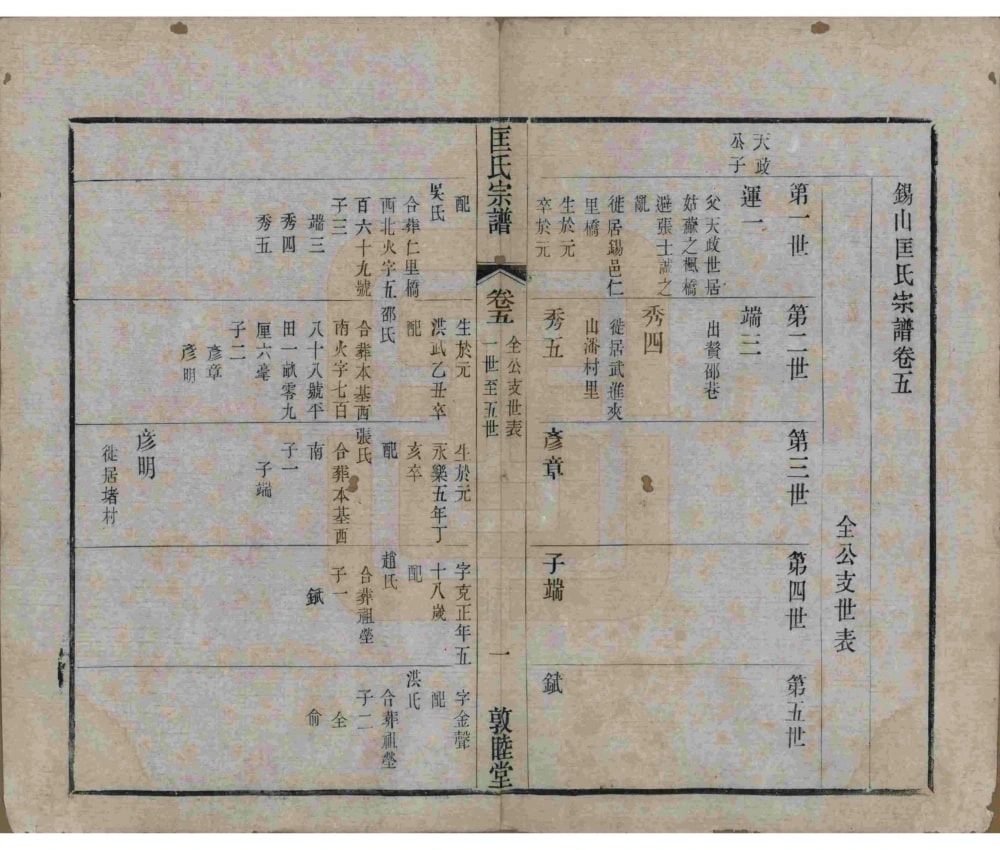 錫山匡氏宗譜卷五
全公支世表
第一世
第二世
第三世
第四世
第五世
天政
公子
運一
父天政世居
姑蘇之楓橋
避張士誠之
亂
徙居錫邑仁
里橋
生於元
卒於元
端三
出贅邵巷
秀四
徙居武進夾
山潘村里
秀五
彥章
子端
鉽
匡氏宗譜
卷五
全公支世表
一世至五世
一
敦睦堂
配
吳氏
合葬仁里橋
西北火字五
百六十九號
子三
端三
秀四
秀五
生於元
洪武乙丑卒
配
邵氏
合葬本基西
南火字七百
八十八號平
田一畝零九
厘六毫
子二
彥章
彥明
生於元
永樂五年丁
亥卒
配
張氏
合葬本基西
南
子一
子端
彥明
徙居堵村
字克正年五
十八歲
配
趙氏
合葬祖塋
子一
鉽
字金聲
配
洪氏
合葬祖塋
子二
全
俞